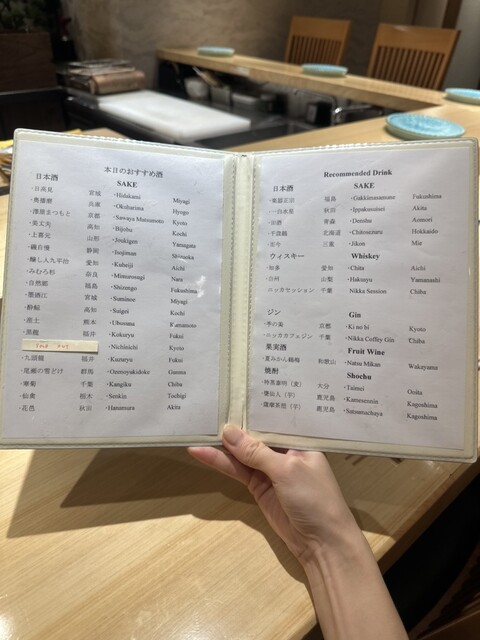 本日のおすすめ酒
日本酒 SAKE
・日高見 宮城 ・Hidakami Miyagi
・奥播磨 兵庫 ・Okuharima Hyogo
・澤屋まつもと 京都 ・Sawaya Matsumoto Kyoto
高知 ・Bijofu Kochi
・上喜元 山形 ・Joukigen Yamagata
・磯自慢 静岡 ・Isojiman Shizuoka
・醸し人九平治 愛知 ・Kuheiji Aichi
・みむろ杉 奈良 ・Mimurosugi Nara
・自然郷 福島 ・Shizengo Fukushima
・墨廼江 宮城 ・Suminoe Miyagi
・酔鯨 高知 ・Suigei Kochi
・産土 熊本 ・Ubusuna Kumamoto
・黒龍 福井 ・Kokuryu Fukui
sold out ・Nichinichi Kyoto
・九頭龍 福井 ・Kuzuryu Fukui
・尾瀬の雪どけ 群馬 ・Ozenoyukidoke Gunma
・寒菊 千葉 ・Kangiku Chiba
・仙禽 栃木 ・Senkin Tochigi
・花邑 秋田 ・Hanamura Akita
Recommended Drink
日本酒 SAKE
・楽器正宗 福島 ・Gakkimasamune Fukushima
・一白水成 秋田 ・Ippakusuisei Akita
・田酒 青森 ・Denshu Aomori
・千歳鶴 北海道 ・Chitosetsuru Hokkaido
・而今 三重 ・Jikon Mie
ウィスキー Whiskey
・知多 愛知 ・Chita Aichi
・白州 山梨 ・Hakusyu Yamanashi
ニッカセッション 千葉 ・Nikka Session Chiba
ジン Gin
・季の美 京都 ・Ki no bi Kyoto
・ニッカカフェジン 千葉 ・Nikka Coffey Gin Chiba
果実酒 Fruit Wine
・夏みかん梅酒 和歌山 ・Natsu Mikan Wakayama
焼酎 Shochu
・特蒸泰明（麦） 大分 ・Taimei Ooita
・甕仙人（芋） 鹿児島 ・Kamesennin Kagoshima
・薩摩茶屋（芋） 鹿児島 ・Satsumachaya Kagoshima